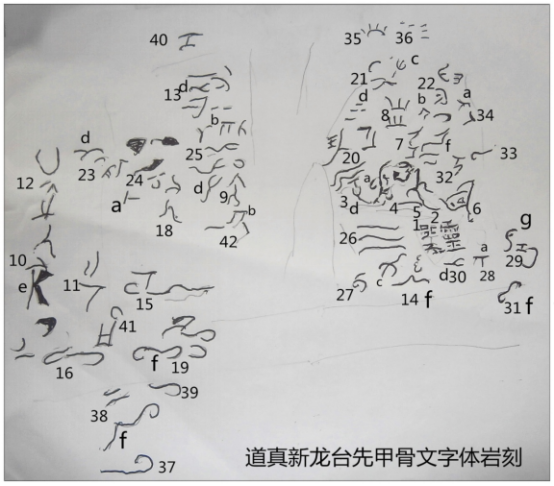 40
35 36
c
21 22
d 13
d a
b
8 34
b
7 f
25 20 33
d
12 23 24
32
a
3 d a 4 5 6
d 9
18
1 2
b
42 26
g
10
a
29
e 11 c 15
d 30 28
27 c 14 f
31 f
41
16 f 19
39
38
f
37
道真新龙台先甲骨文字体岩刻